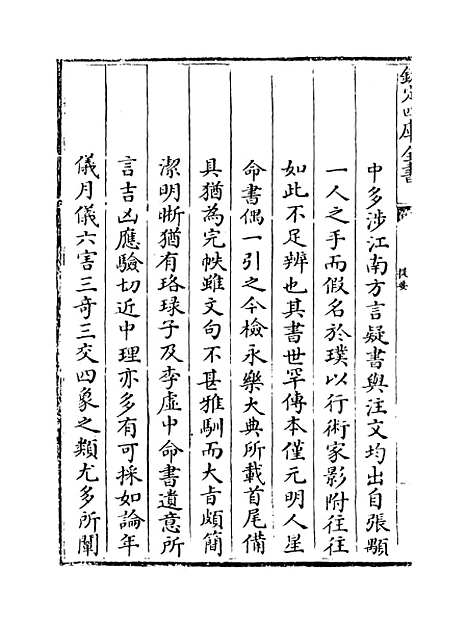 欽定四庫全書
提要
中多涉江南方言疑書與注文均出自張顒
一人之手而假名於璞以行術家影附往往
如此不足辨也其書世罕傳本僅元明人星
命書偶一引之今檢永樂大典所載首尾備
具猶為完帙雖文句不甚雅馴而大㫖頗簡
潔明晰猶有珞琭子及李虚中命書遺意所
言吉凶應驗切近中理亦多有可採如論年
儀月儀六害三奇三交四象之類尤多所闡